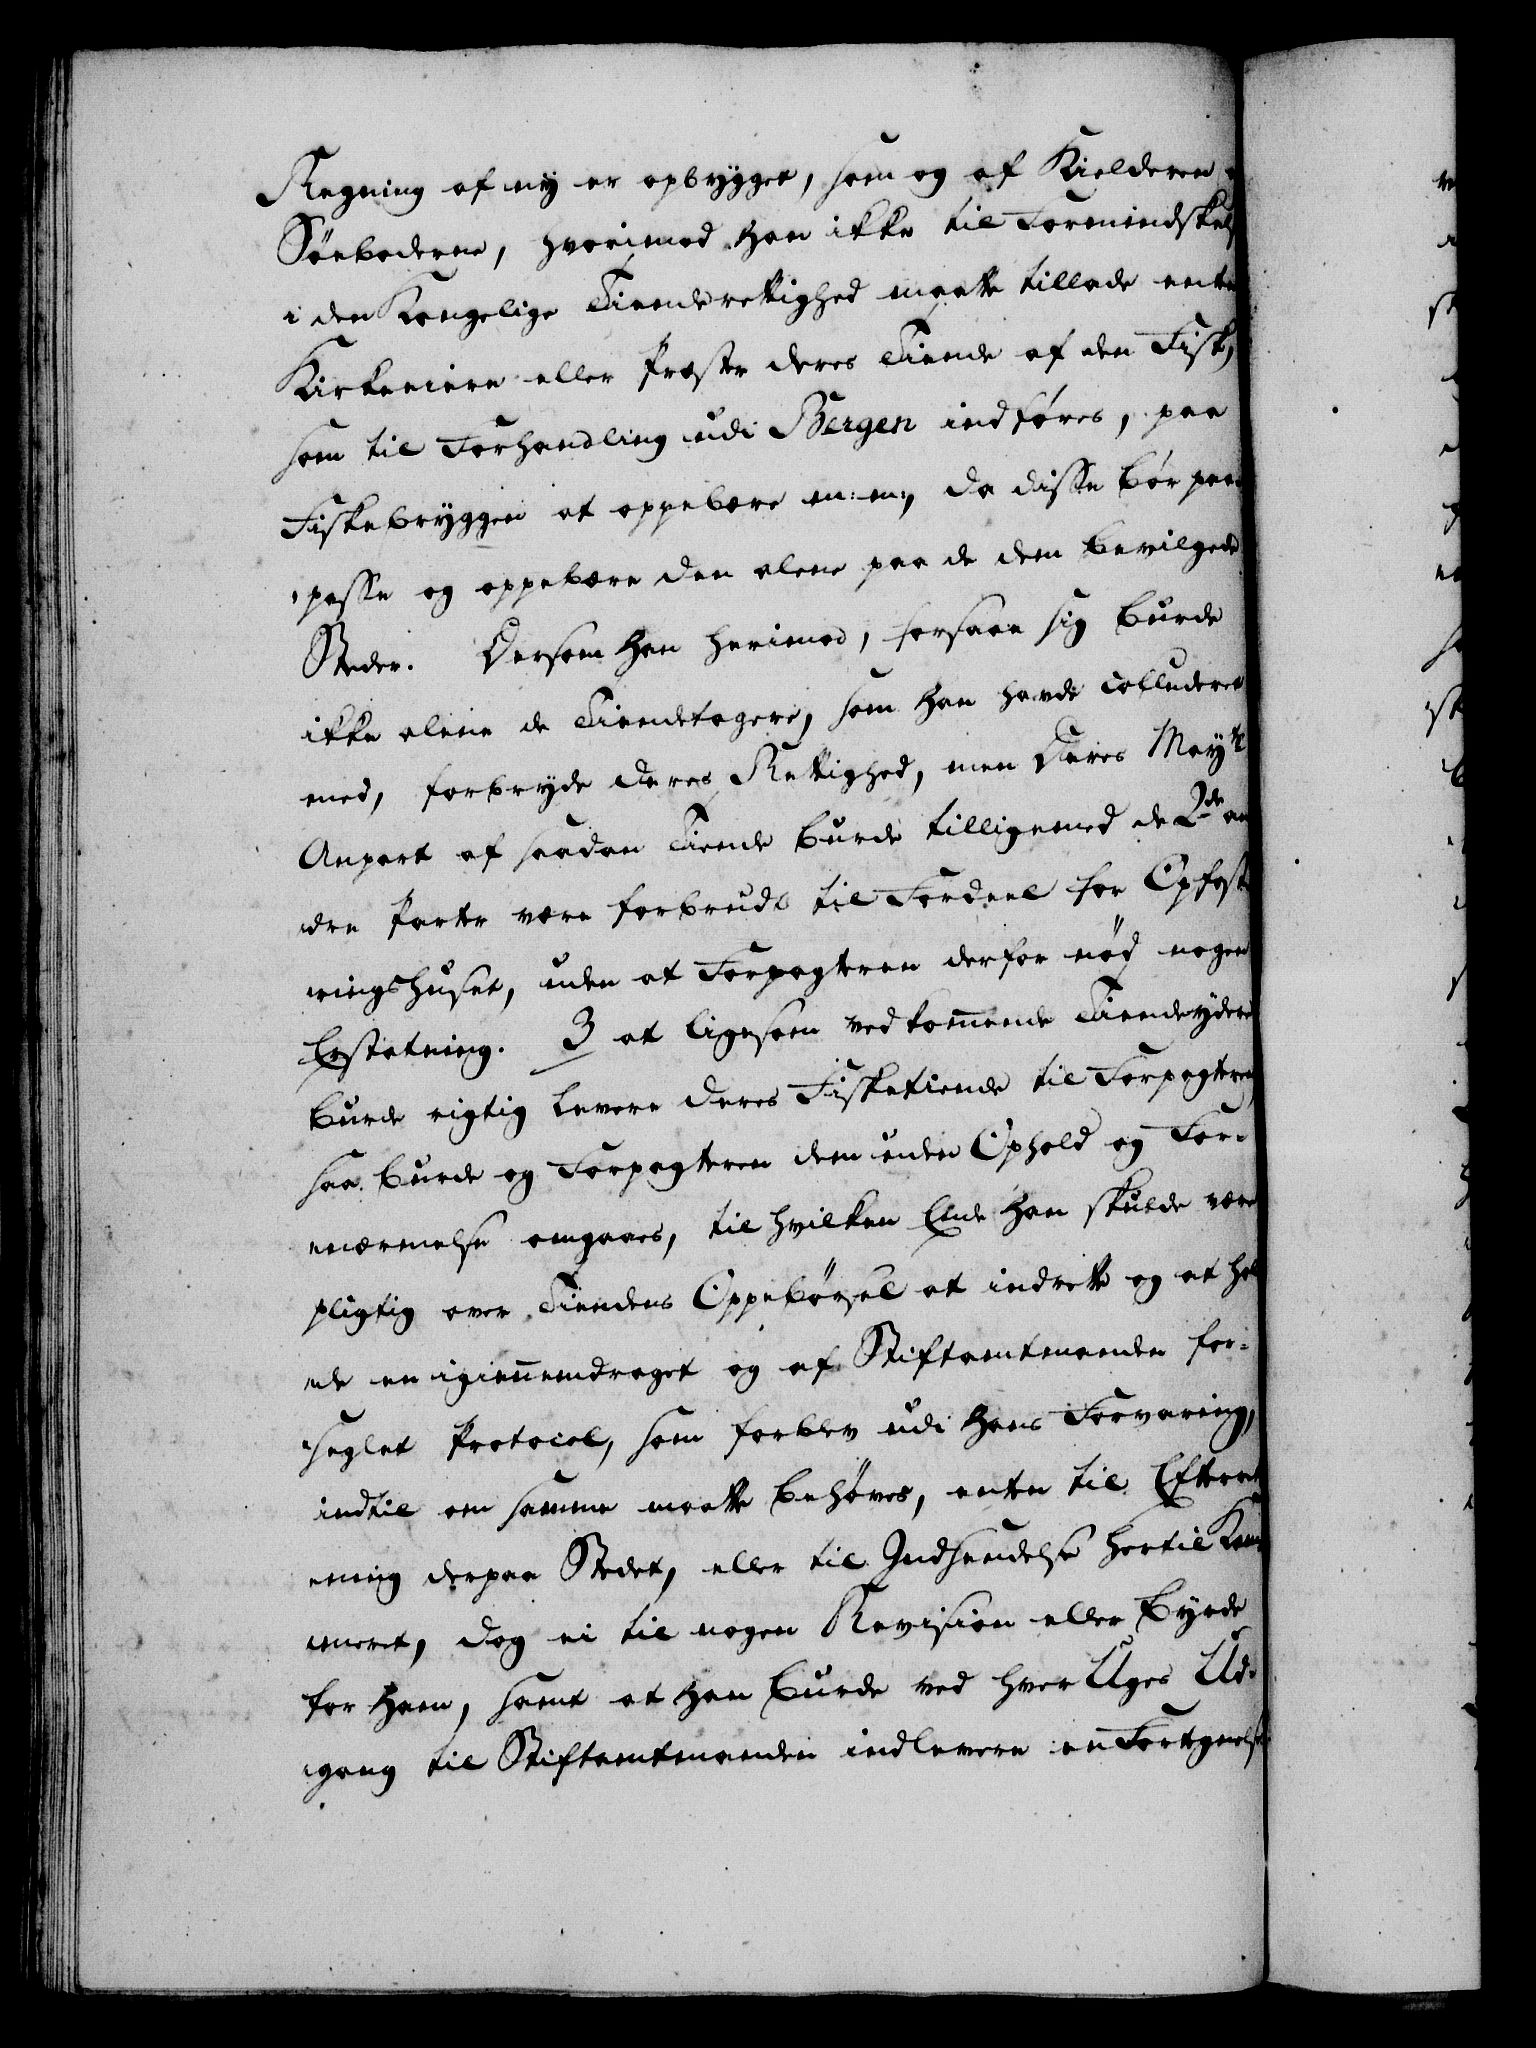 Regning af ny er opbygget, som og af Kielderen
Söeboderne, hvorimod han ikke til Formindskels
i den Kongelige Tienderettighed maatte tillade enten
Kirkeeiere eller Præster deres Tiende af den Fisk,
som til Forhandling udi Bergen indføres, paa
Fiskebryggen at oppebære m: m:, da disse bør paa-
passe og oppebære den alene paa de dem bevilgede
Steder. Dersom han herimod, forsaae sig burde
ikke alene de Tiendetagere, som han havde colluderet
med, forbryde deres Rettighed, men Deres Mayts
Anpart af saadan Tiende burde tilligemed de 2de an
dre Parter være forbrudt til Fordeel for Opfost
ringshuset, uden at Forpagteren derfor nød nogen
Erstatning. 3 at ligesom vedkommende Tiendeydere
burde rigtig levere deres Fisketiende til Forpagteren,
saa burde og Forpagteren dem uden Ophold og For-
nærmelse omgaaes, til hvilken Ende han skulde være
pligtig over Tiendens Oppebørsel at indrette og at hol
de en igiennemdraget og af Stiftamtmanden for-
seglet Protocol, som forblev udi hans Forvaring,
indtil om samme maatte behøves, enten til Efterret
ning derpaa Stedet, eller til Indsendelse hertil Kam
meret, dog ei til nogen Revision eller byrde
for ham, samt at han burde ved hver Uges Ud-
gang til Stiftamtmanden indlevere en Fortegnelse